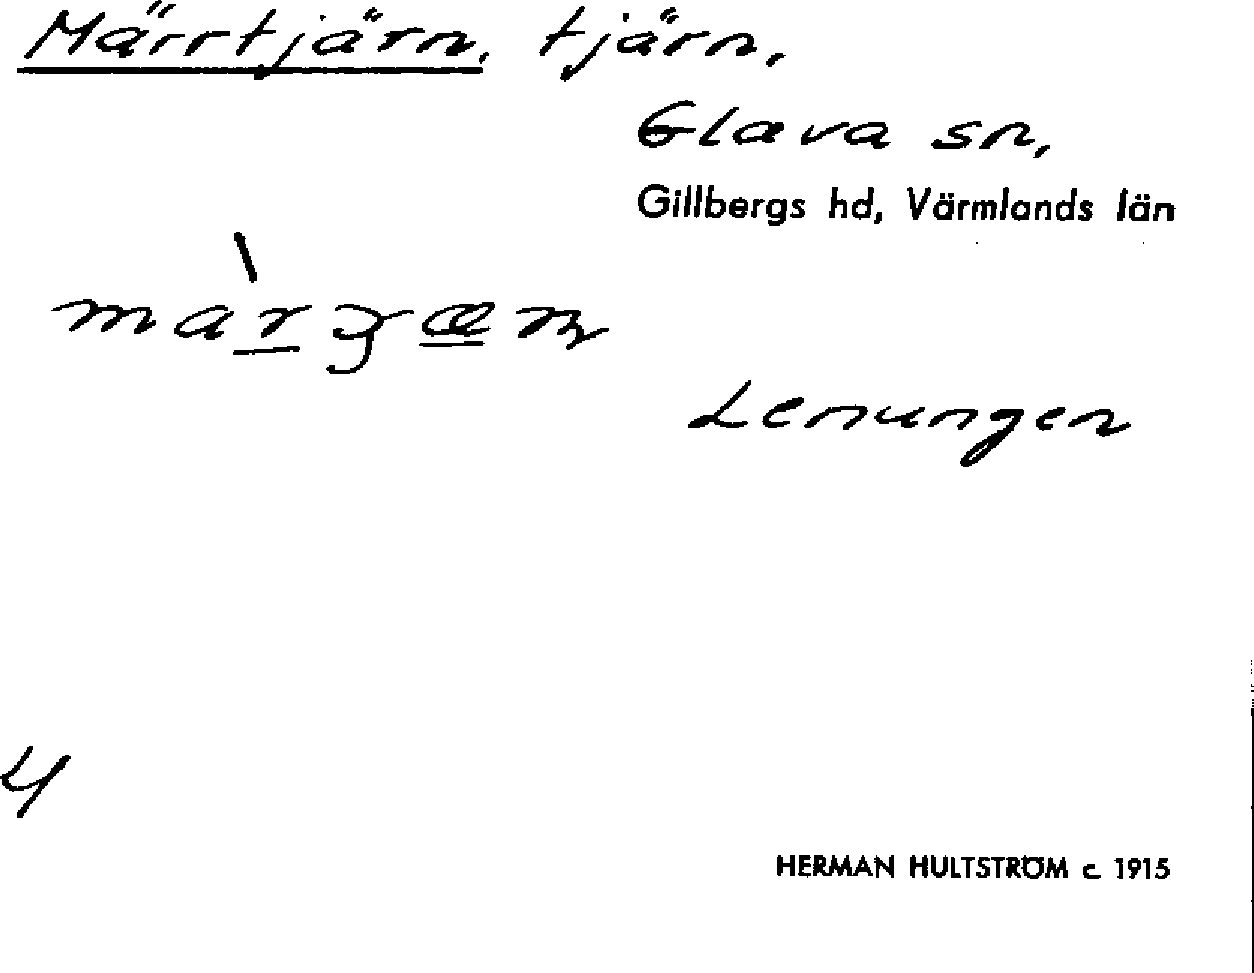 Märrtjärn, tjärn,
Glava sn,
Gillbergs hd, Värmlands län
Lenungen
4
HERMAN HULTSTRÖM c 1915